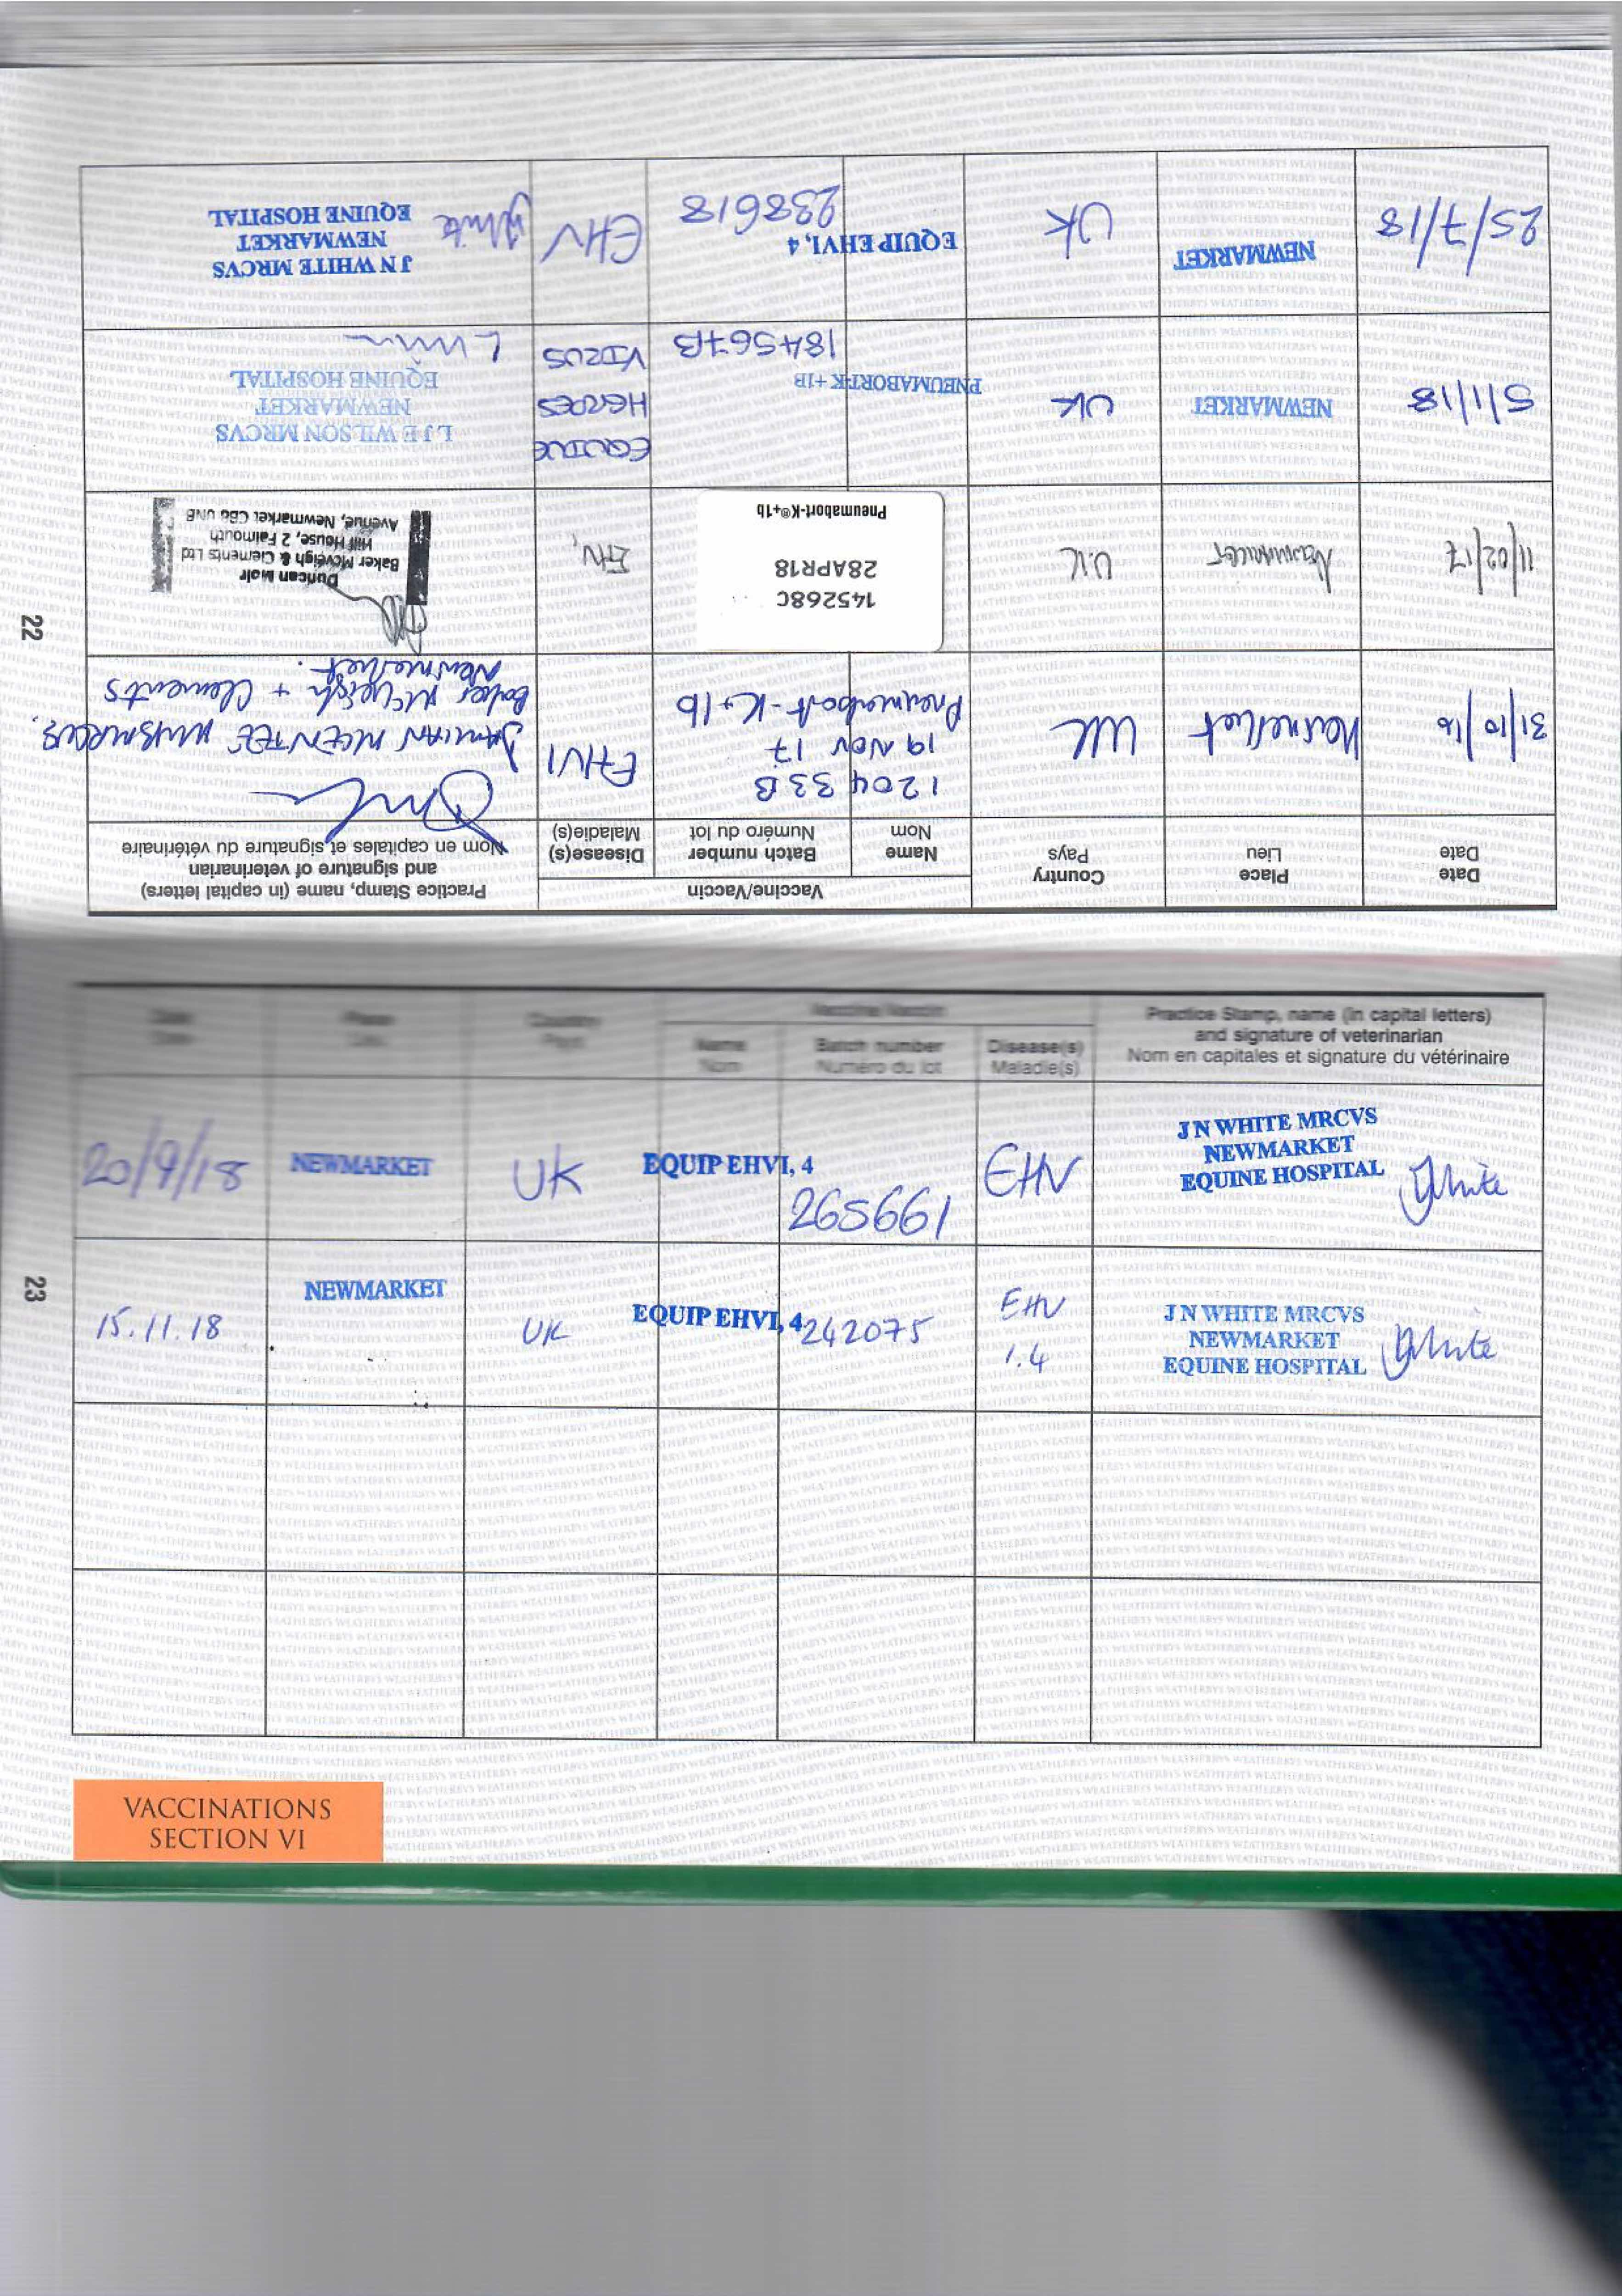 22
Date
Date
Place
Lieu
Country
Pays
Vaccine/Vaccin
Name
Nom
Batch number
Numéro du lot
Disease(s)
Maladie(s)
Practice Stamp, name (in capital letters)
and signature of veterinarian
Nom en capitales et signature du vétérinaire
31/10/16
Newmarket
UK
120433B
19 NOV 17
Pneumabort-K+1b
EHV1
DAMIAN MCENTEE MVBMRCVS.
Baker McVeigh + Clements
Newmarket.
11/02/17
Newmarket
U.K
145268C
28APR18
Pneumabort-K®+1b
EHV,
Duncan Moir
Baker McVeigh & Clements Ltd
Hill House, 2 Falmouth
Avenue, Newmarket CB8 0NB
5/1/18
NEWMARKET
UK
PNEUMABORT-K+1B
184567B
EQUINE
HERPES
VIRUS
L J E WILSON MRCVS
NEWMARKET
EQUINE HOSPITAL
25/7/18
NEWMARKET
UK
EQUIP EHVI, 4
238618
EHV
J N WHITE MRCVS
NEWMARKET
EQUINE HOSPITAL
JWhite
23
Date
Date
Place
Lieu
Country
Pays
Vaccine/Vaccin
Name
Nom
Batch number
Numéro du lot
Disease(s)
Maladie(s)
Practice Stamp, name (in capital letters)
and signature of veterinarian
Nom en capitales et signature du vétérinaire
20/9/18
NEWMARKET
UK
EQUIP EHVI, 4
265661
EHV
J N WHITE MRCVS
NEWMARKET
EQUINE HOSPITAL
JWhite
15.11.18
NEWMARKET
UK
EQUIP EHVI, 4
242075
EHV
1.4
J N WHITE MRCVS
NEWMARKET
EQUINE HOSPITAL
JWhite
VACCINATIONS
SECTION VI